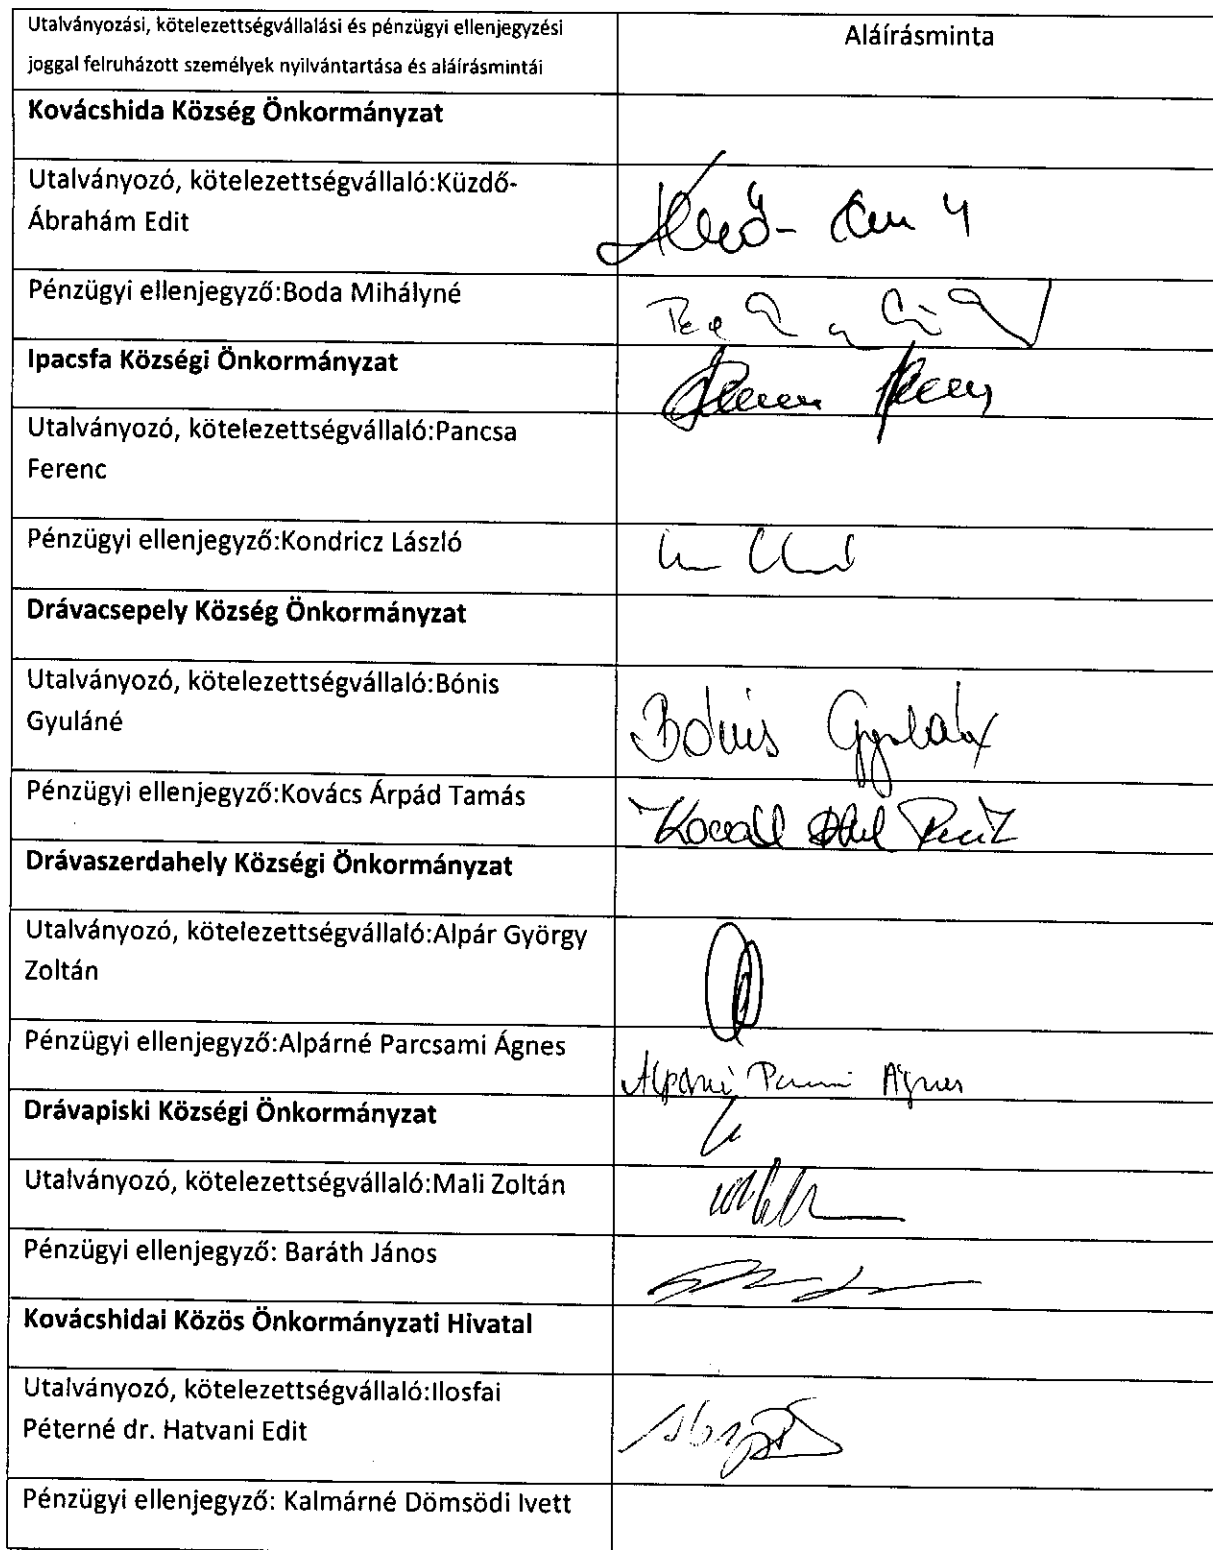 Utalványozási, kötelezettségvállalási és pénzügyi ellenjegyzési
joggal felruházott személyek nyilvántartása és aláírásmintái
Aláírásminta
Kovácshida Község Önkormányzat
Utalványozó, kötelezettségvállaló:Küzdő-
Ábrahám Edit
Pénzügyi ellenjegyző:Boda Mihályné
Ipacsfa Községi Önkormányzat
Utalványozó, kötelezettségvállaló:Pancsa
Ferenc
Pénzügyi ellenjegyző:Kondricz László
Drávacsepely Község Önkormányzat
Utalványozó, kötelezettségvállaló:Bónis
Gyuláné
Bónis
Pénzügyi ellenjegyző:Kovács Árpád Tamás
Drávaszerdahely Községi Önkormányzat
Utalványozó, kötelezettségvállaló:Alpár György
Zoltán
Pénzügyi ellenjegyző:Alpárné Parcsami Ágnes
Ágnes
Drávapiski Községi Önkormányzat
Utalványozó, kötelezettségvállaló:Mali Zoltán
Pénzügyi ellenjegyző: Baráth János
Kovácshidai Közös Önkormányzati Hivatal
Utalványozó, kötelezettségvállaló:Ilosfai
Péterné dr. Hatvani Edit
Pénzügyi ellenjegyző: Kalmárné Dömsödi Ivett